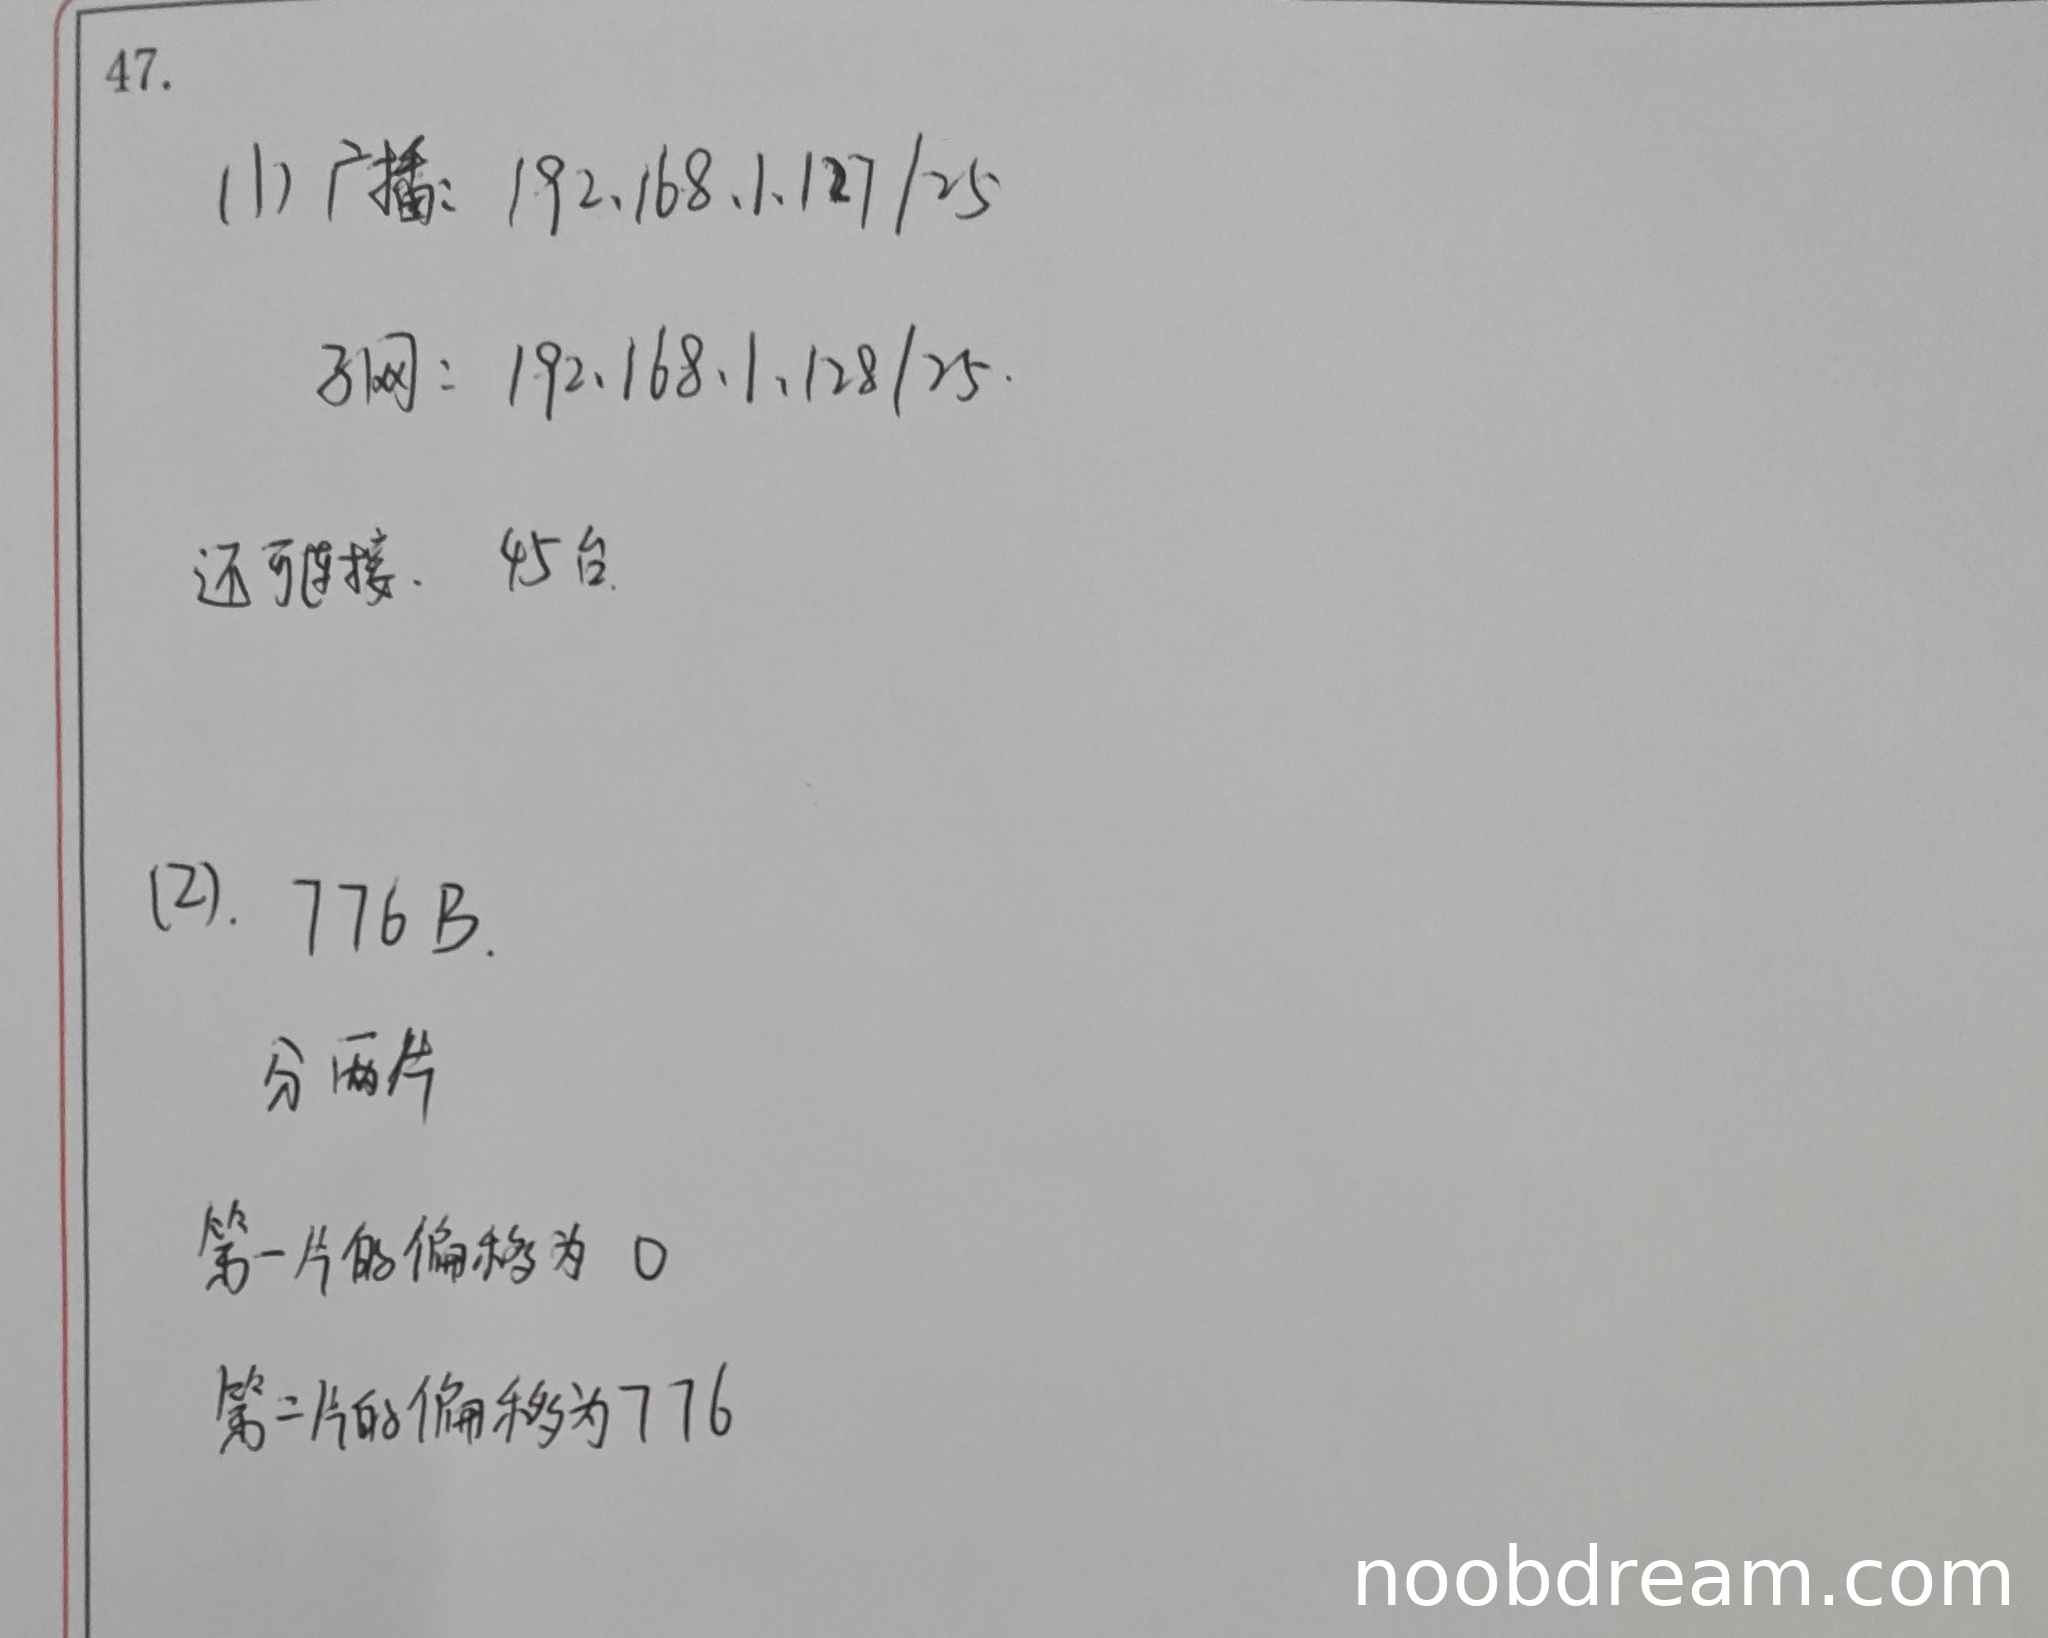 47.
(1) 广播: 192.168.1.127/25
子网: 192.168.1.128/25.
还可连接. 45台.
(2). 776 B.
分两片
第一片的偏移为 0
第二片的偏移为 776
noobdream.com